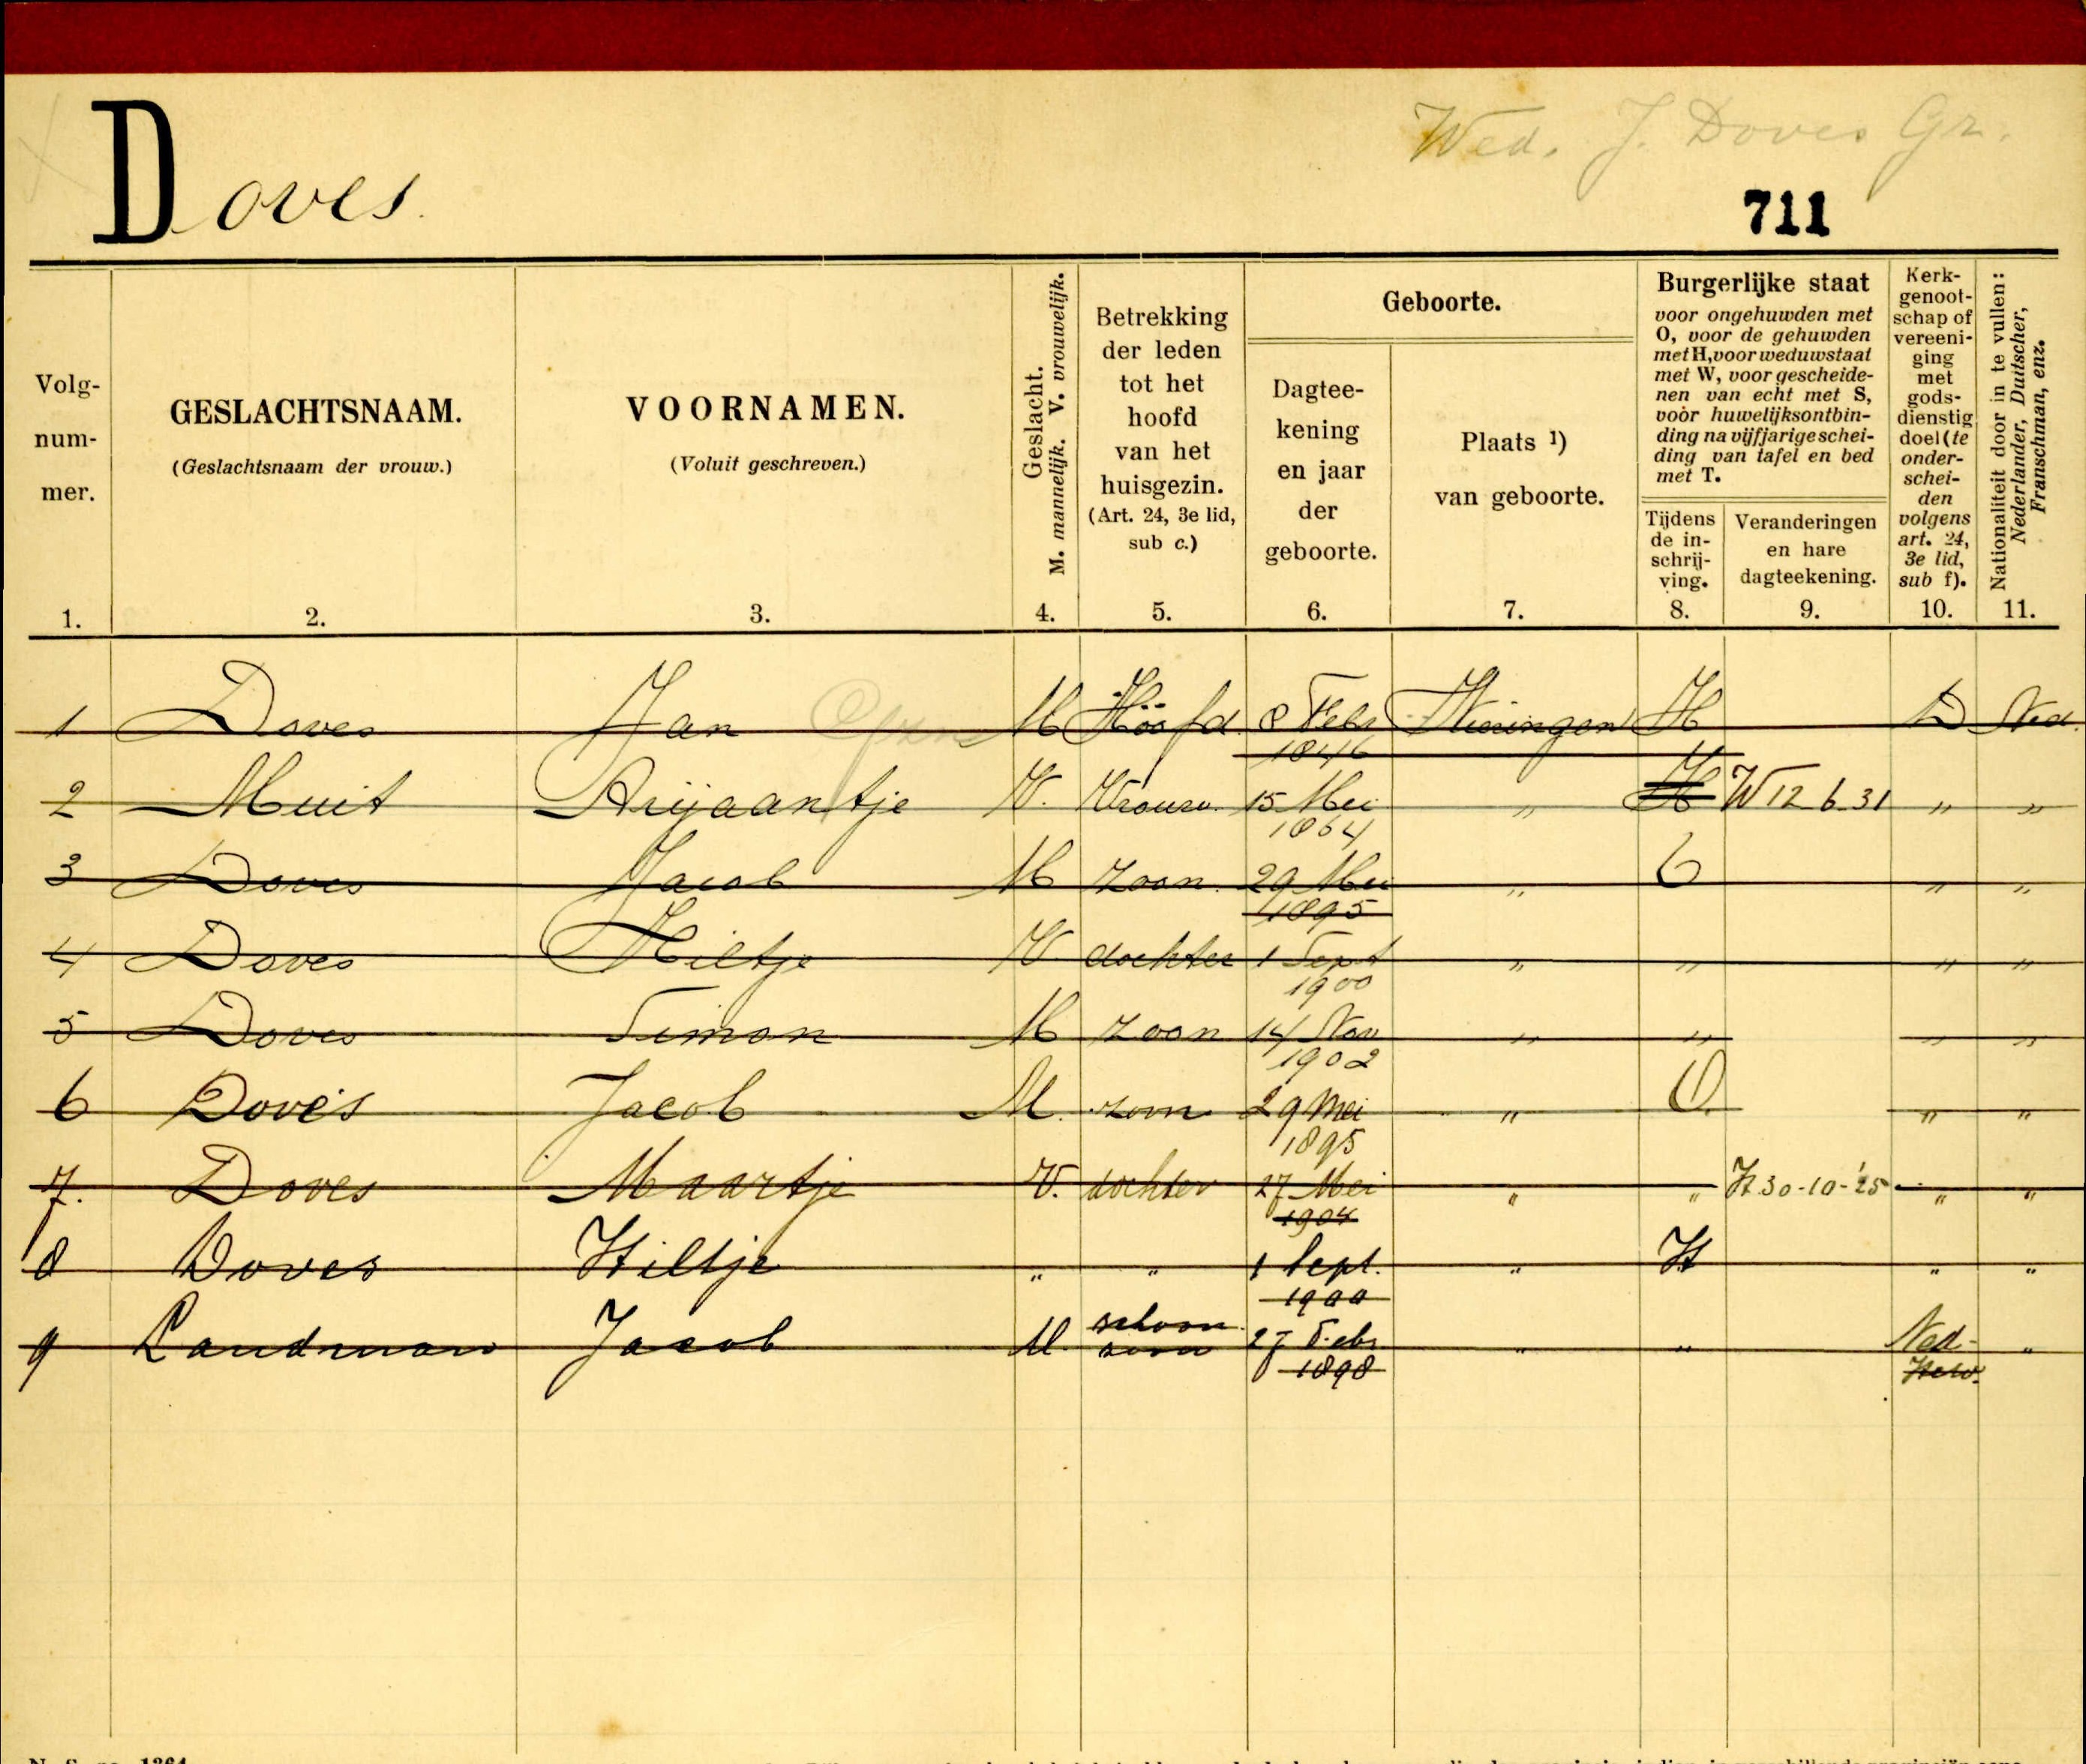 Wed. J. Doves Gr.
Doves.
711
Volg-
num-
mer.
GESLACHTSNAAM.
(Geslachtsnaam der vrouw.)
VOORNAMEN.
(Voluit geschreven.)
Geslacht.
M. mannelijk. V. vrouwelijk.
Betrekking
der leden
tot het
hoofd
van het
huisgezin.
(Art. 24, 3e lid,
sub c.)
Geboorte.
Dagtee-
kening
en jaar
der
geboorte.
Plaats ¹)
van geboorte.
Burgerlijke staat
voor ongehuwden met
O, voor de gehuwden
met H, voor weduwstaat
met W, voor gescheide-
nen van echt met S,
voor huwelijksontbin-
ding na vijfjarige schei-
ding van tafel en bed
met T.
Tijdens
de in-
schrij-
ving.
Veranderingen
en hare
dagteekening.
Kerk-
genoot-
schap of
vereeni-
ging
met
gods-
dienstig
doel (te
onder-
schei-
den
volgens
art. 24,
3e lid,
sub f).
Nationaliteit door in te vullen:
Nederlander, Duitscher,
Franschman, enz.
1. 2. 3. 4. 5. 6. 7. 8. 9. 10. 11.
1 Doves Jan M Hoofd 8 Febr Wieringen H D Ned.
1846
2 Muit Arijaantje V. Vrouw. 15 Mei " H W 12 6 31 " "
1864
3 Doves Jacob M Zoon. 29 Mei " O " "
1895
4 Doves Hiltje V. dochter 1 Sept " " " "
1900
5 Doves Simon M Zoon 14 Nov " " " "
1902
6 Doves Jacob M. zoon 29 Mei " O. " "
1895
7. Doves Maartje V. dochter 27 Mei " " H 30-10-'25 " "
1904
8 Doves Hiltje " " 1 Sept. " H " "
1900
9 Landman Jacob M. schoon 27 Febr " " Ned. "
zoon 1898 Herv.